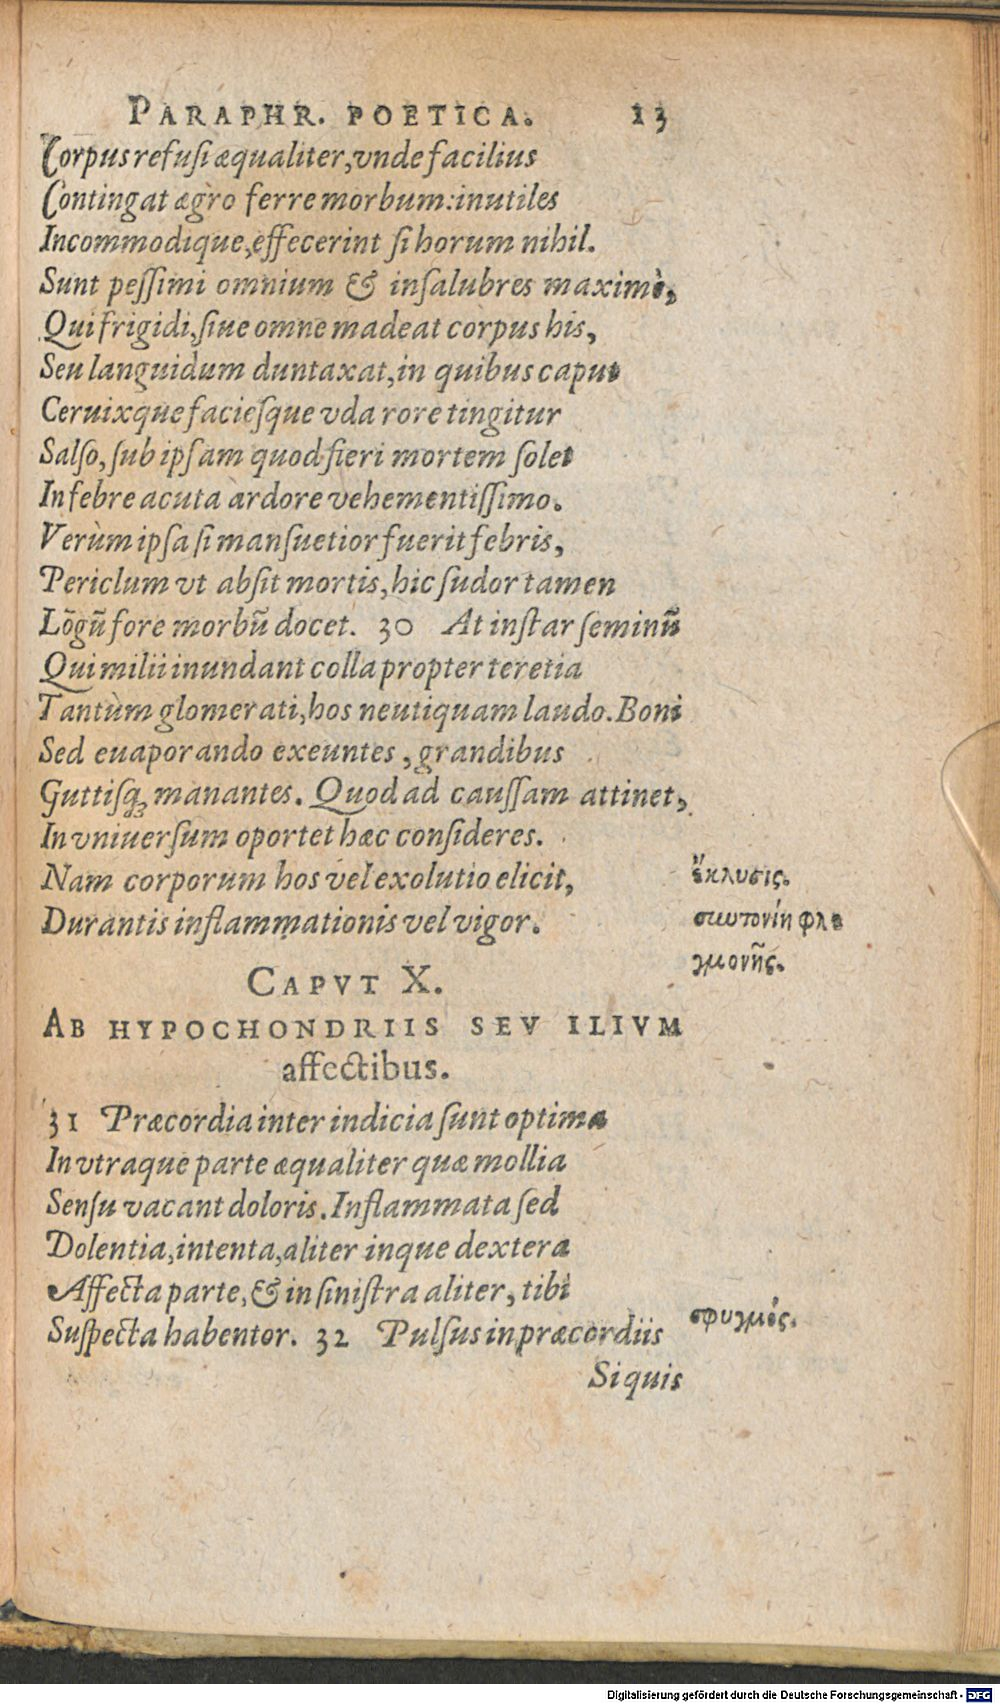 PARAPHR. POETICA. 13
Corpus refuſi æqualiter, vnde facilius
Contingat ægro ferre morbum: inutiles
Incommodique, effecerint ſi horum nihil.
Sunt peſſimi omnium & inſalubres maximè,
Qui frigidi, ſiue omne madeat corpus his,
Seu languidum duntaxat, in quibus caput
Ceruixque facieſque vda rore tingitur
Salſo, ſub ipſam quod fieri mortem ſolet
In febre acuta ardore vehementiſſimo.
Verùm ipſa ſi manſuetior fuerit febris,
Periclum vt abſit mortis, hic ſudor tamen
Lõgũ fore morbũ docet. 30 At inſtar ſeminũ
Qui milii inundant colla propter teretia
Tantùm glomerati, hos neutiquam laudo. Boni
Sed euaporando exeuntes, grandibus
Guttiſq; manantes. Quod ad cauſſam attinet,
In vniuerſum oportet hæc conſideres.
Nam corporum hos vel exolutio elicit, ἔκλυσις.
Durantis inflammationis vel vigor. συντονίη φλε
γμονῆς.
CAPVT X.
AB HYPOCHONDRIIS SEV ILIVM
affectibus.
31 Præcordia inter indicia ſunt optima
In vtraque parte æqualiter quæ mollia
Senſu vacant doloris. Inflammata ſed
Dolentia, intenta, aliter inque dextera
Affecta parte, & in ſiniſtra aliter, tibi
Suſpecta habentor. 32 Pulſus in præcordiis σφυγμός.
Siquis
Digitalisierung gefördert durch die Deutsche Forschungsgemeinschaft - DFG